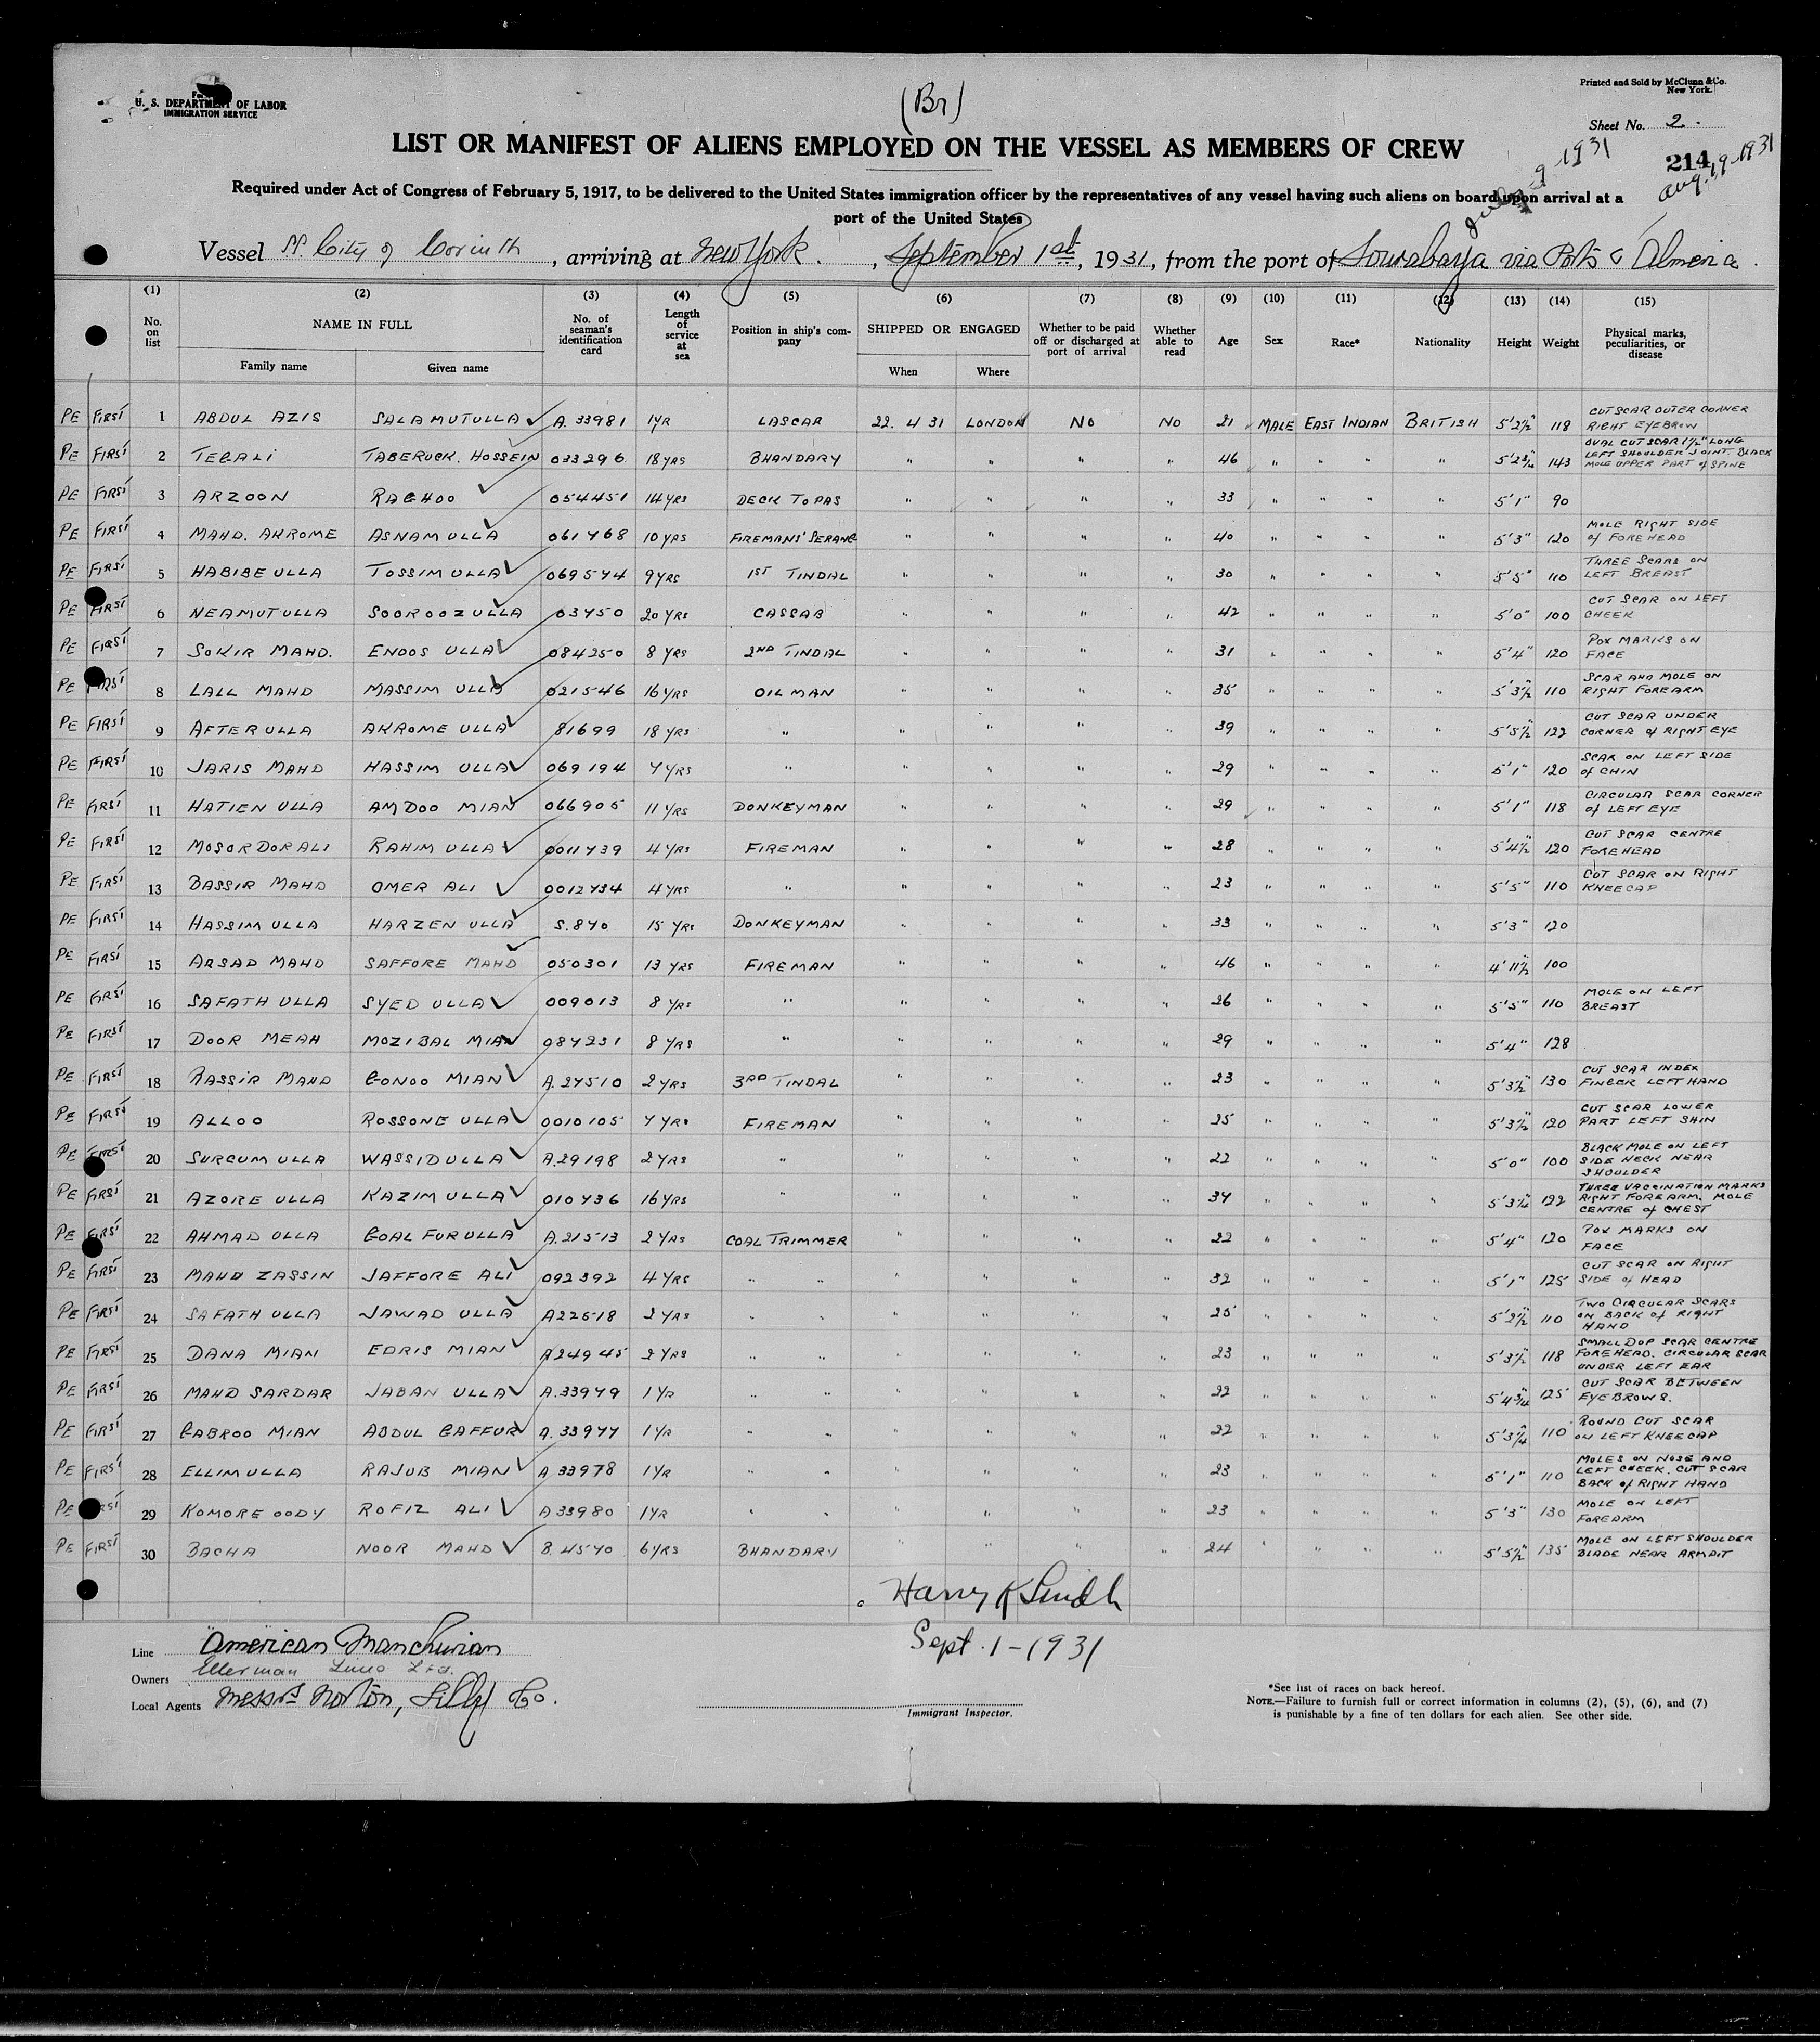 U. S. DEPARTMENT OF LABOR
IMMIGRATION SERVICE
(Br)
Printed and Sold by McClunn & Co.
New York.
Sheet No. 2.
LIST OR MANIFEST OF ALIENS EMPLOYED ON THE VESSEL AS MEMBERS OF CREW
214
July 9-1931
Aug. 19-1931
Required under Act of Congress of February 5, 1917, to be delivered to the United States immigration officer by the representatives of any vessel having such aliens on board upon arrival at a
port of the United States
Vessel SS. City of Corinth, arriving at New York., September 1st, 1931, from the port of Sourabaya via Ports & Almeria.
(1) (2) (3) (4) (5) (6) (7) (8) (9) (10) (11) (12) (13) (14) (15)
No. on list NAME IN FULL No. of seaman's identification card Length of service at sea Position in ship's company SHIPPED OR ENGAGED Whether to be paid off or discharged at port of arrival Whether able to read Age Sex Race* Nationality Height Weight Physical marks, peculiarities, or disease
Family name Given name When Where
PE FIRST 1 ABDUL AZIS SALAMUTULLA A.33981 1YR LASCAR 22.4 31 LONDON NO NO 21 MALE EAST INDIAN BRITISH 5'2½" 118 CUT SCAR OUTER CORNER RIGHT EYEBROW
PE FIRST 2 TEGALI TABERUCK. HOSSEIN 033296 18 YRS BHANDARY " " " " 46 " " " " 5'2¾" 143 OVAL CUT SCAR 1½" LONG LEFT SHOULDER JOINT. BLACK MOLE UPPER PART of SPINE
PE FIRST 3 ARZOON RAGHOO 054451 14 YRS DECK TOPAS " " " " 33 " " " " 5'1" 90
PE FIRST 4 MAHD. AKROME ASNAM ULLA 061768 10 YRS FIREMANS' SERANG " " " " 40 " " " " 5'3" 120 MOLE RIGHT SIDE of FOREHEAD
PE FIRST 5 HABIBE ULLA TOSSIM ULLA 069574 9 YRS 1ST TINDAL " " " " 30 " " " " 5'5" 110 THREE SCARS ON LEFT BREAST
PE FIRST 6 NEAMUT ULLA SOOROOZ ULLA 03750 20 YRS CASSAB " " " " 42 " " " " 5'0" 100 CUT SCAR ON LEFT CHEEK
PE FIRST 7 SOKIR MAHD. ENDOS ULLA 084250 8 YRS 2ND TINDAL " " " " 31 " " " " 5'4" 120 POX MARKS ON FACE
PE FIRST 8 LALL MAHD MASSIM ULLA 021546 16 YRS OIL MAN " " " " 35 " " " " 5'3½" 110 SCAR AND MOLE ON RIGHT FOREARM
PE FIRST 9 AFTER ULLA AKROME ULLA 81699 18 YRS " " " " " 39 " " " " 5'5½" 122 CUT SCAR UNDER CORNER of RIGHT EYE
PE FIRST 10 JARIS MAHD HASSIM ULLA 069194 7 YRS " " " " " 29 " " " " 5'1" 120 SCAR ON LEFT SIDE of CHIN
PE FIRST 11 HATIEN ULLA AMDOO MIAN 066905 11 YRS DONKEYMAN " " " " 29 " " " " 5'1" 118 CIRCULAR SCAR CORNER of LEFT EYE
PE FIRST 12 MOSOR DOR ALI RAHIM ULLA 0011739 4 YRS FIREMAN " " " " 28 " " " " 5'4½" 120 CUT SCAR CENTRE FOREHEAD
PE FIRST 13 BASSIR MAHD OMER ALI 0012734 4 YRS " " " " " 23 " " " " 5'5" 110 CUT SCAR ON RIGHT KNEECAP
PE FIRST 14 HASSIM ULLA HARZEN ULLA S.870 15 YRS DONKEYMAN " " " " 33 " " " " 5'3" 120
PE FIRST 15 ARSAD MAHD SAFFORE MAHD 050301 13 YRS FIREMAN " " " " 46 " " " " 4'11½" 100
PE FIRST 16 SAFATH ULLA SYED ULLA 009013 8 YRS " " " " " 26 " " " " 5'5" 110 MOLE ON LEFT BREAST
PE FIRST 17 DOOR MEAH MOZIBAL MIAN 087231 8 YRS " " " " " 29 " " " " 5'4" 128
PE FIRST 18 RASSIR MAHD GONOO MIAN A.27510 2 YRS 3RD TINDAL " " " " 23 " " " " 5'3½" 130 CUT SCAR INDEX FINGER LEFT HAND
PE FIRST 19 ALLOO ROSSONE ULLA 0010105 7 YRS FIREMAN " " " " 25 " " " " 5'3½" 120 CUT SCAR LOWER PART LEFT SHIN
PE FIRST 20 SURGUM ULLA WASSID ULLA A.29198 2 YRS " " " " " 22 " " " " 5'0" 100 BLACK MOLE ON LEFT SIDE NECK NEAR SHOULDER
PE FIRST 21 AZORE ULLA KAZIM ULLA 010736 16 YRS " " " " " 37 " " " " 5'3¼" 122 THREE VACCINATION MARKS RIGHT FOREARM. MOLE CENTRE of CHEST
PE FIRST 22 AHMAD ULLA GOAL FUR ULLA A.21513 2 YRS COAL TRIMMER " " " " 22 " " " " 5'4" 120 POX MARKS ON FACE
PE FIRST 23 MAHD ZASSIN JAFFORE ALI 092392 4 YRS " " " " " " 32 " " " " 5'1" 125 CUT SCAR ON RIGHT SIDE of HEAD
PE FIRST 24 SAFATH ULLA JAWAD ULLA A22518 2 YRS " " " " " " 25 " " " " 5'2½" 110 TWO CIRCULAR SCARS ON BACK of RIGHT HAND
PE FIRST 25 DANA MIAN EDRIS MIAN A24945 2 YRS " " " " " " 23 " " " " 5'3½" 118 SMALL DOP SCAR CENTRE FOREHEAD. CIRCULAR SCAR UNDER LEFT EAR
PE FIRST 26 MAHD SARDAR JABAN ULLA A.33979 1 YR " " " " " " 22 " " " " 5'4¾" 125 CUT SCAR BETWEEN EYEBROWS.
PE FIRST 27 GABROO MIAN ABDUL GAFFUR A.33977 1 YR " " " " " " 22 " " " " 5'3¼" 110 ROUND CUT SCAR ON LEFT KNEECAP
PE FIRST 28 ELLIM ULLA RAJUB MIAN A 33978 1 YR " " " " " " 23 " " " " 5'1" 110 MOLES ON NOSE AND LEFT CHEEK. CUT SCAR BACK of RIGHT HAND
PE FIRST 29 KOMORE OODY ROFIZ ALI A33980 1 YR " " " " " " 23 " " " " 5'3" 130 MOLE ON LEFT FOREARM
PE FIRST 30 BACHA NOOR MAHD B.4570 6 YRS BHANDARY " " " " 24 " " " " 5'5½" 135 MOLE ON LEFT SHOULDER BLADE NEAR ARMPIT
Harry K Smith
Sept. 1-1931
Line American Manchurian
Owners Ellerman Lines Ltd.
Local Agents Messrs Norton, Lilly Co.
Immigrant Inspector.
*See list of races on back hereof.
NOTE.—Failure to furnish full or correct information in columns (2), (5), (6), and (7)
is punishable by a fine of ten dollars for each alien. See other side.